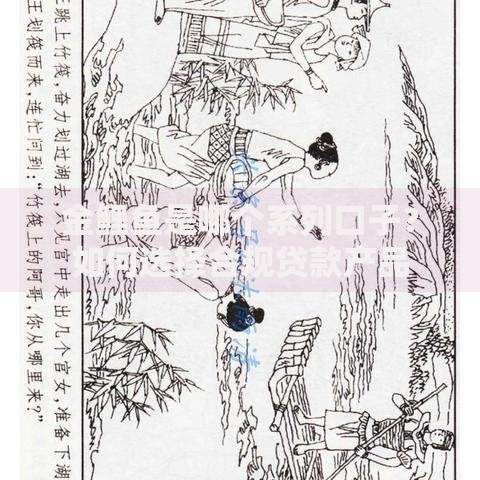 金鲤鱼是哪个系列口子？
如何选择合规贷款产品
跳上竹筏,奋力划过湖去,只见宫中走出几个宫女,准备下湖
王划筏而来,连忙问到:“竹筏上的阿哥,你从哪里来?”